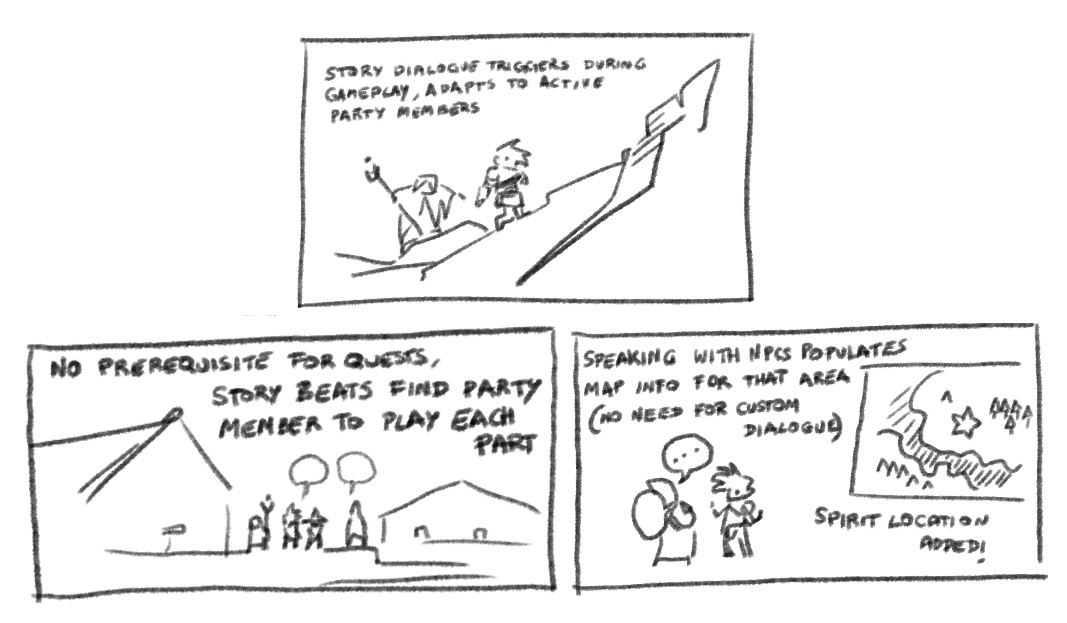 STORY DIALOGUE TRIGGERS DURING
GAMEPLAY, ADAPTS TO ACTIVE
PARTY MEMBERS
NO PREREQUISITE FOR QUESTS,
STORY BEATS FIND PARTY
MEMBER TO PLAY EACH
PART
SPEAKING WITH NPCS POPULATES
MAP INFO FOR THAT AREA
(NO NEED FOR CUSTOM
DIALOGUE)
...
SPIRIT LOCATION
ADDED!